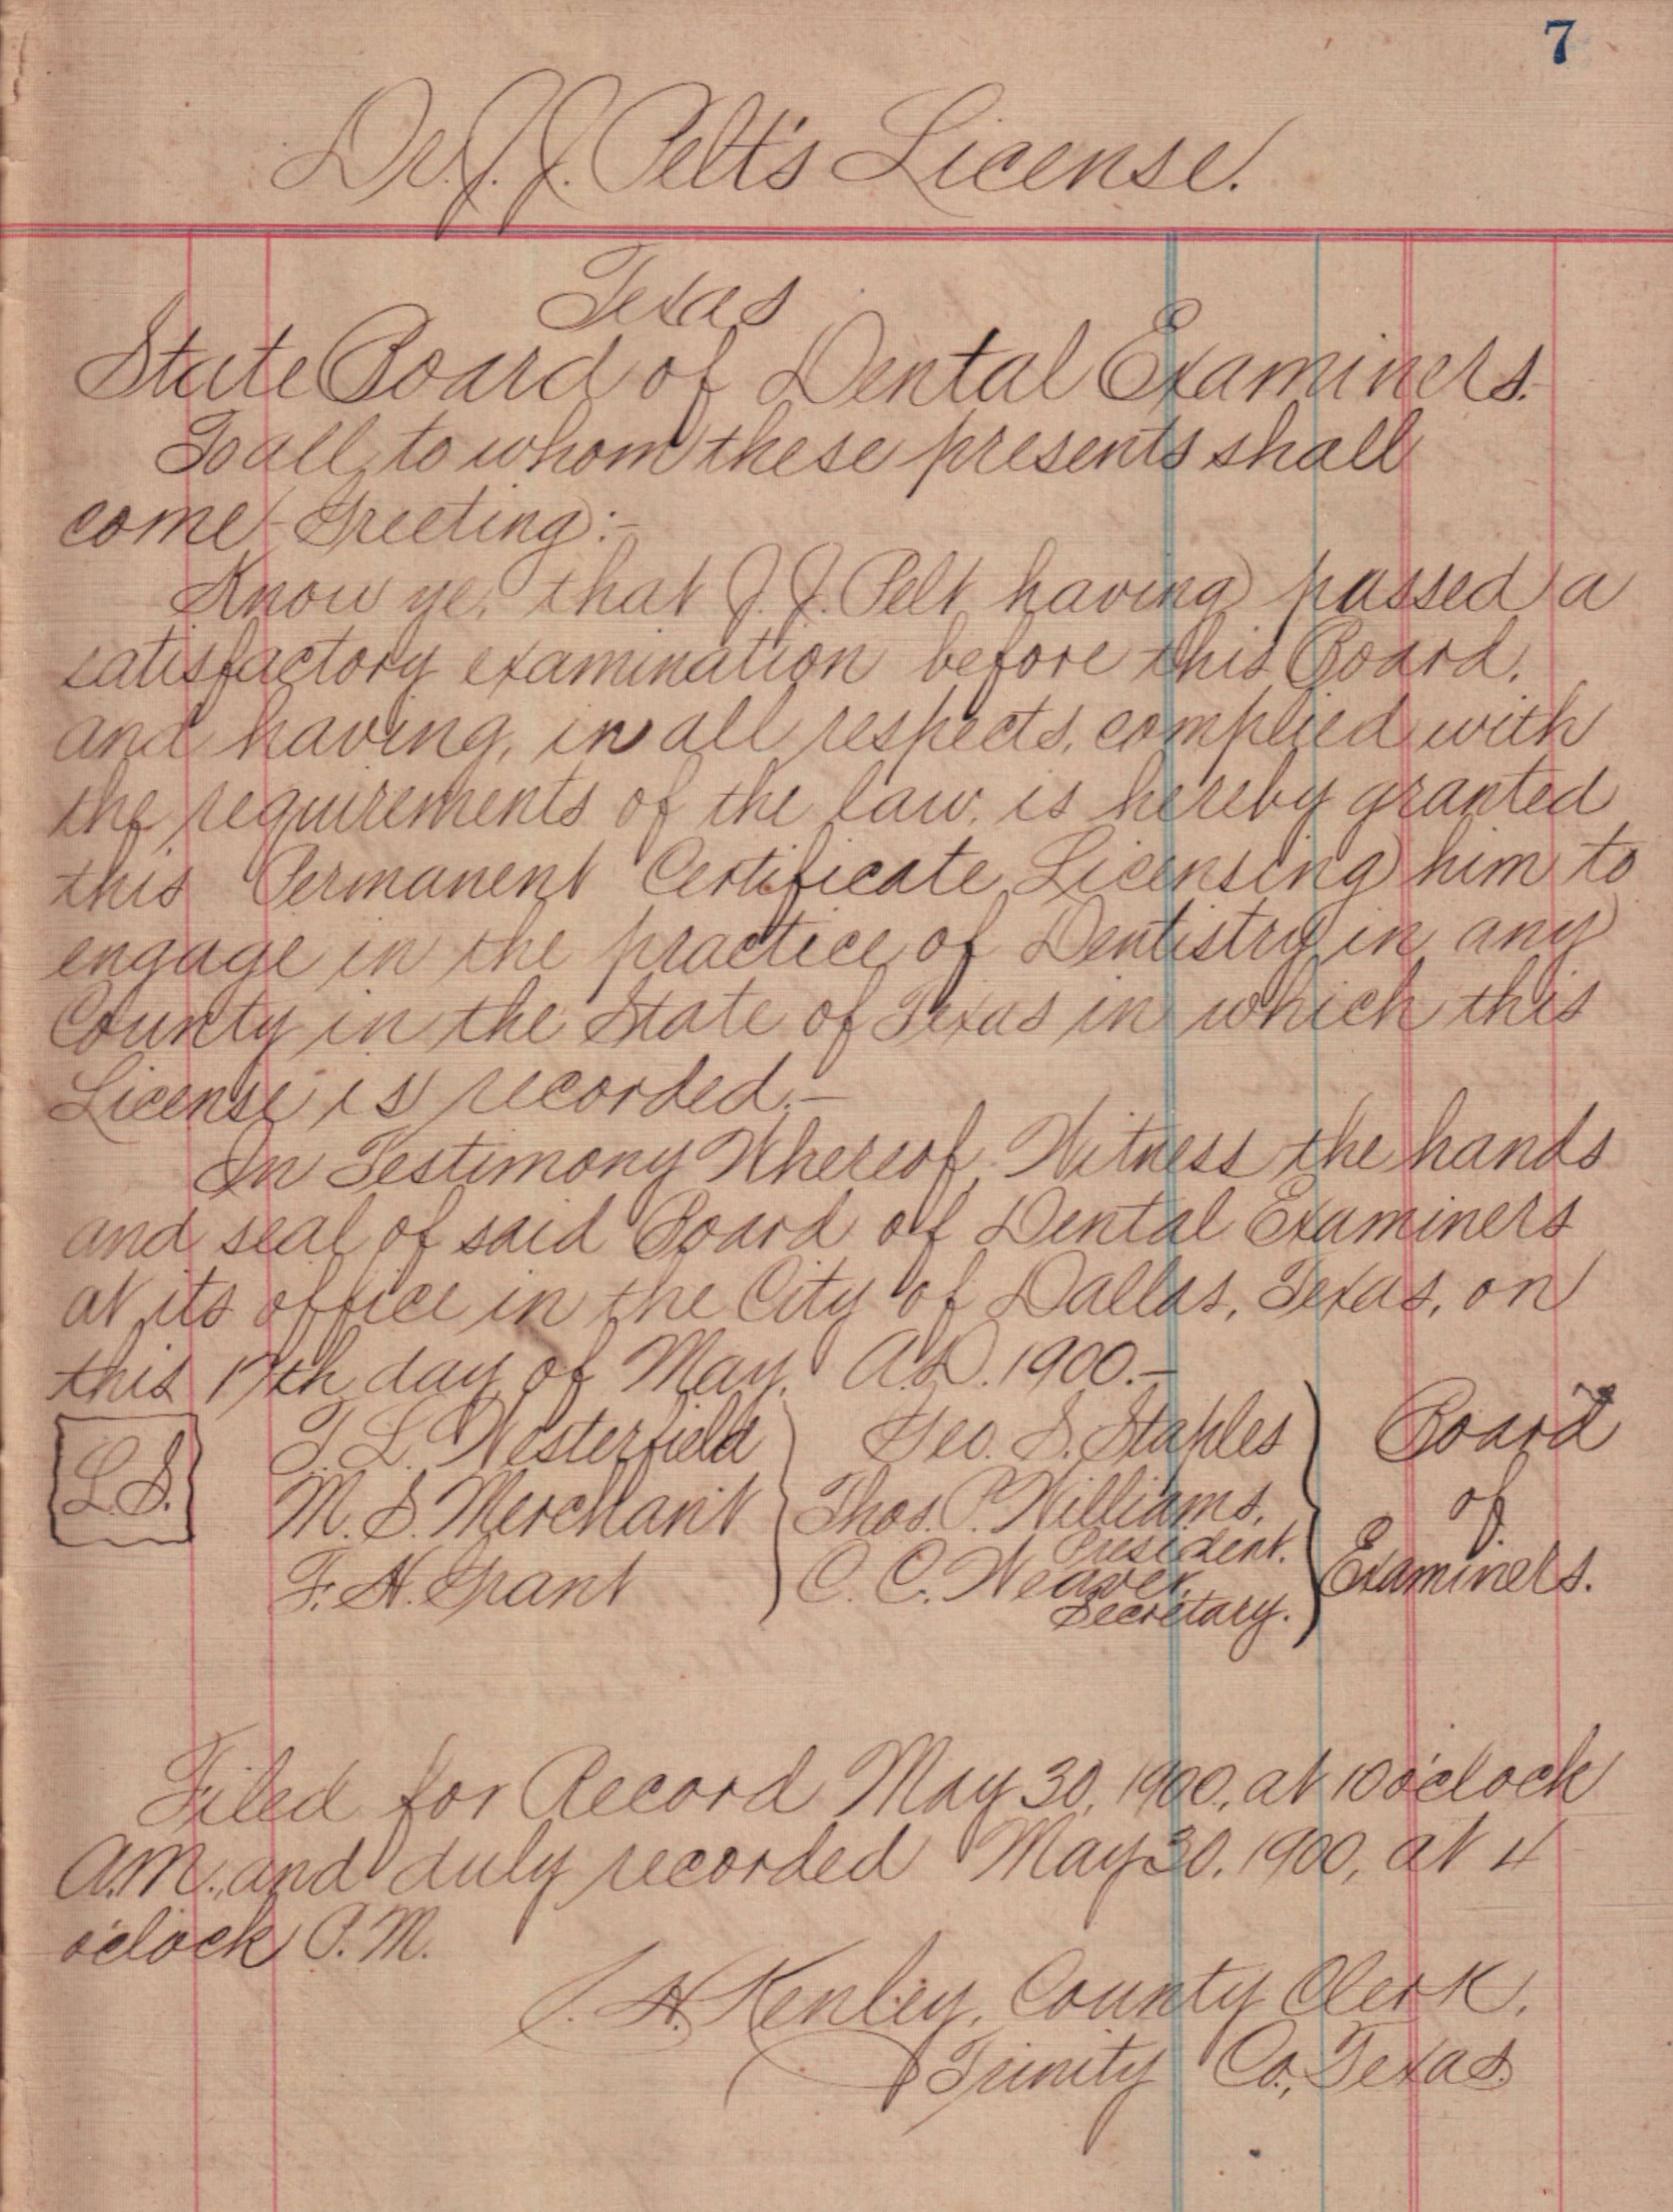 7
Dr. J. J. Pelt's License.
Texas
State Board of Dental Examiners.
To all to whom these presents shall
come - Greeting:-
Know ye, that J. J. Pelt having passed a
satisfactory examination before this Board,
and having, in all respects, complied with
the requirements of the law, is hereby granted
this Permanent Certificate Licensing him to
engage in the practice of Dentistry in any
County in the State of Texas in which this
License is recorded.-
In Testimony Whereof, Witness the hands
and seal of said Board of Dental Examiners
at its office in the City of Dallas, Texas, on
this 17th day of May, A.D. 1900.-
L.S.
T. L. Westerfield
M. S. Merchant
F. H. Grant
Geo. S. Staples
Thos. P. Williams,
President.
C. C. Weaver,
Secretary.
Board
of
Examiners.
Filed for Record May 30, 1900, at 10 o'clock
A.M., and duly recorded May 30, 1900, at 4
o'clock P.M.
H. Kenley, County Clerk,
Trinity Co., Texas.